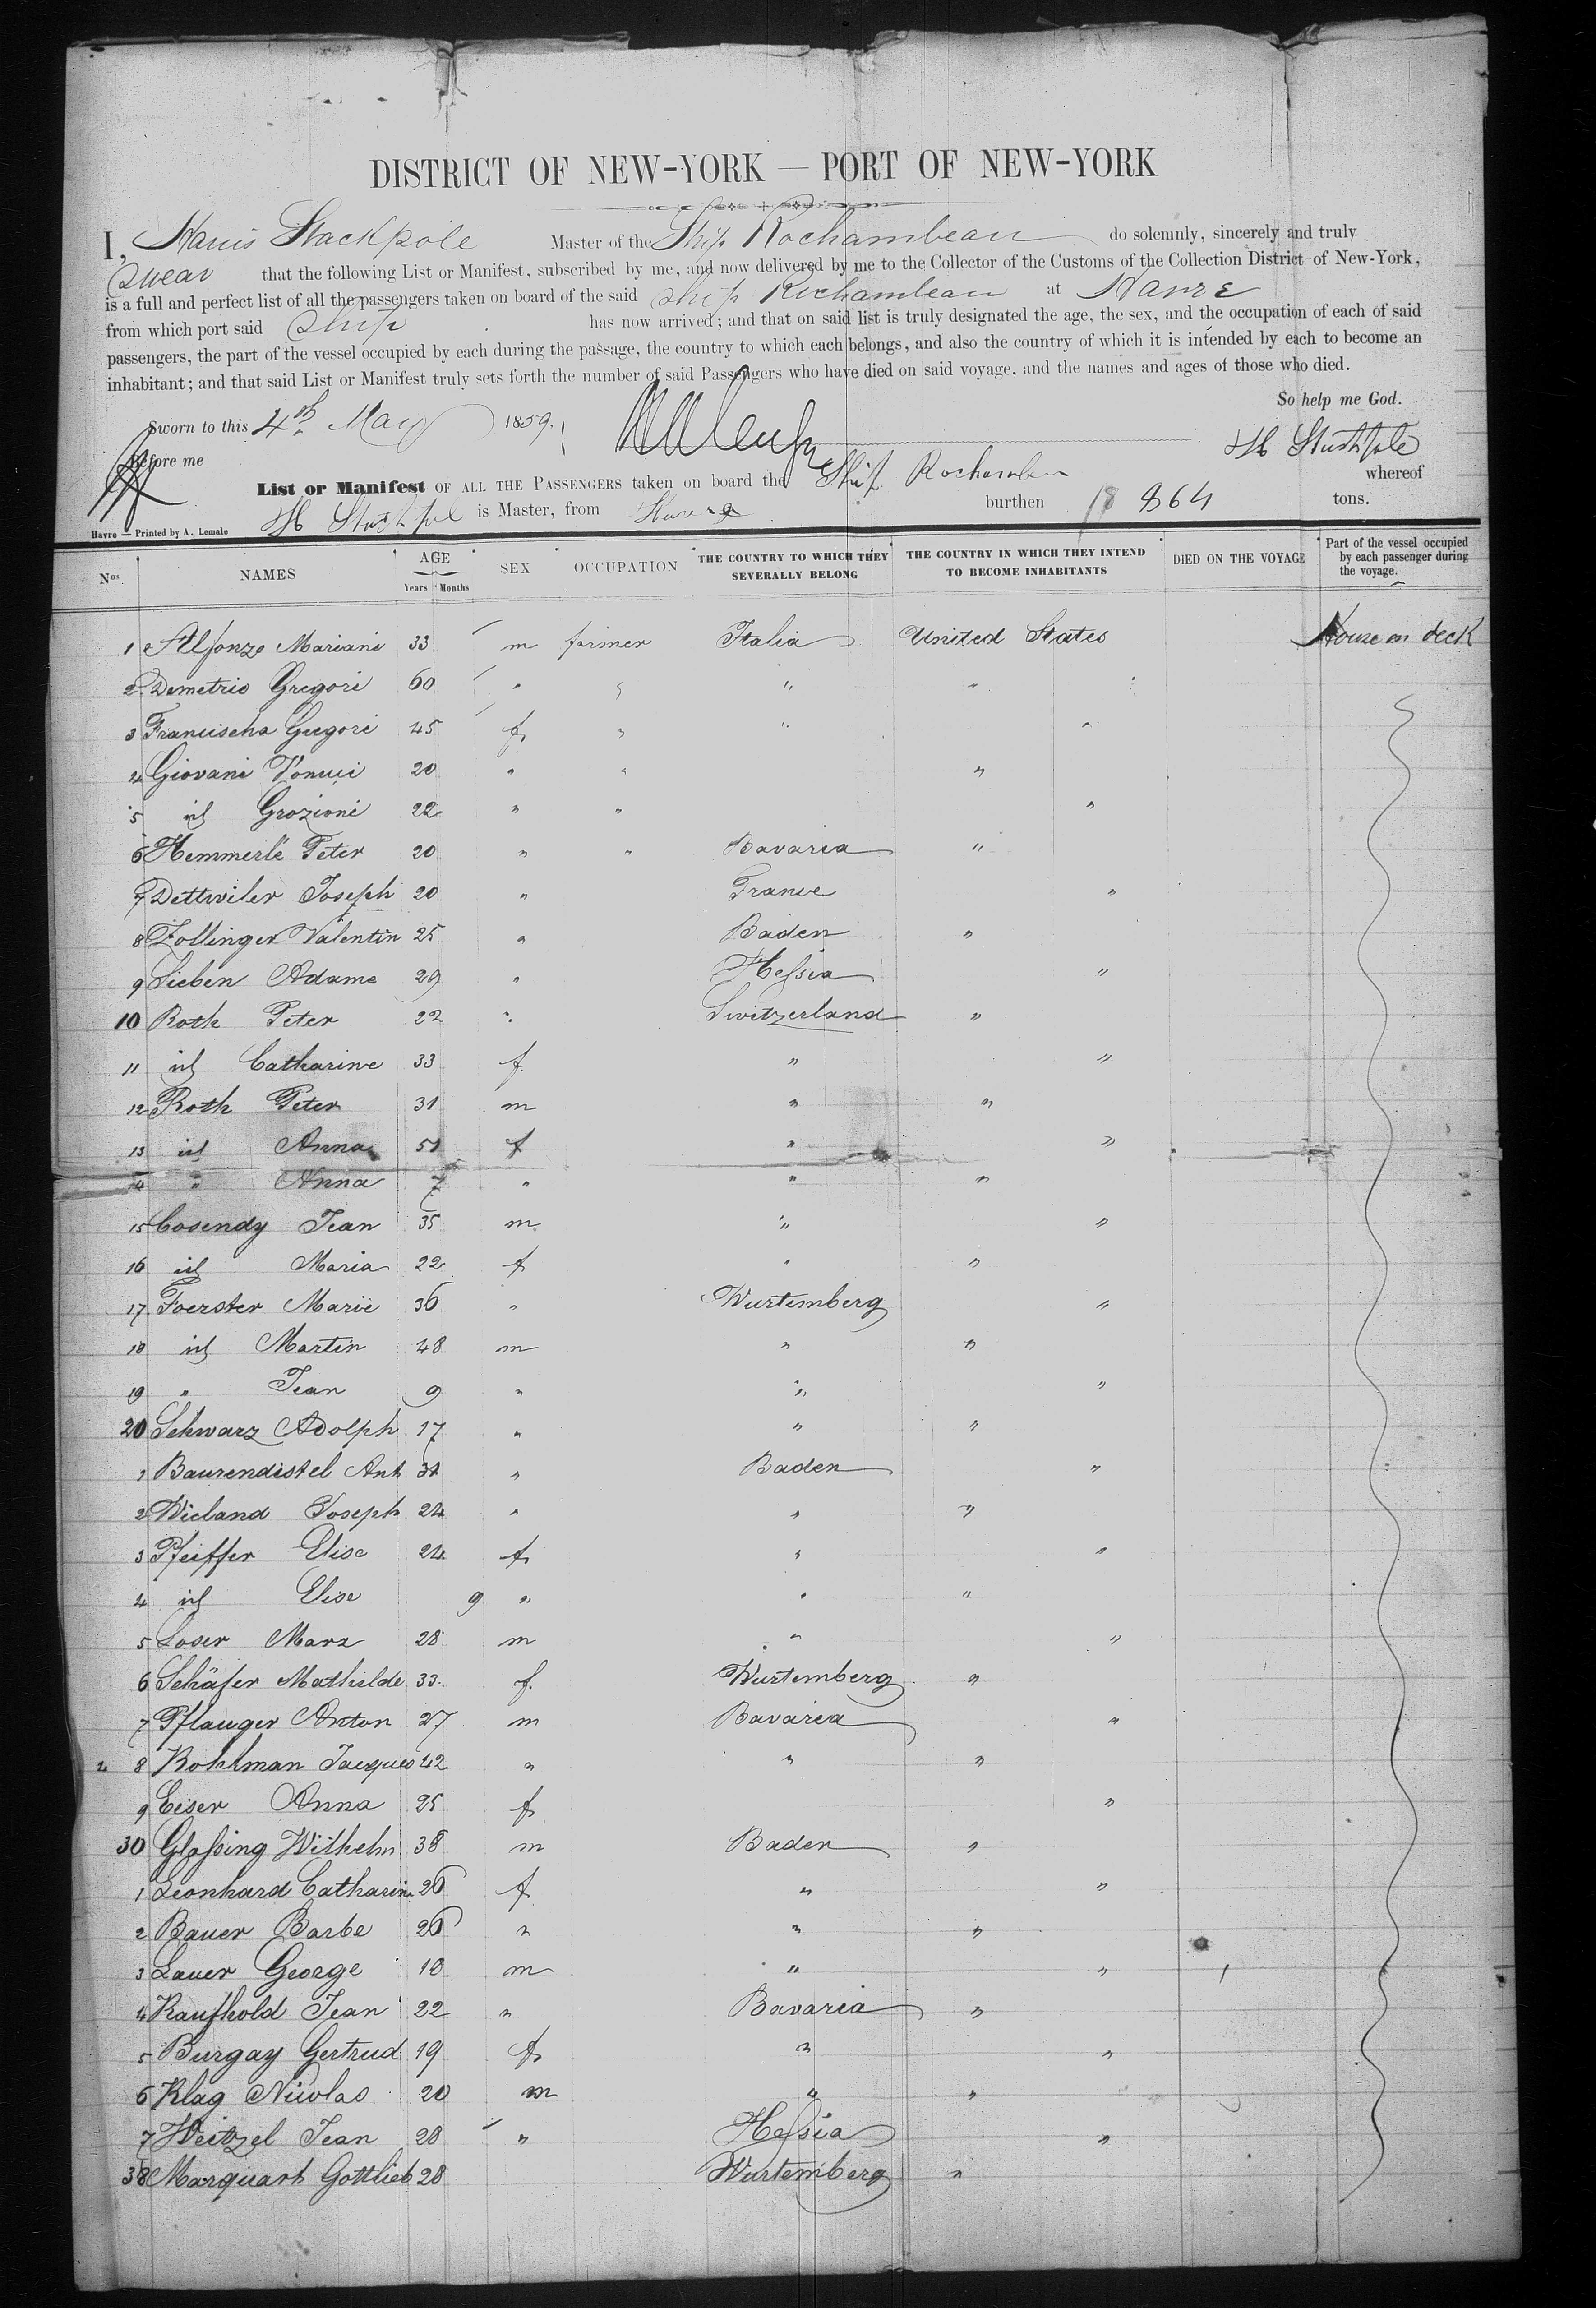 DISTRICT OF NEW-YORK — PORT OF NEW-YORK
I, Harris Stackpole Master of the Ship Rochambeau do solemnly, sincerely and truly
swear that the following List or Manifest, subscribed by me, and now delivered by me to the Collector of the Customs of the Collection District of New-York,
is a full and perfect list of all the passengers taken on board of the said Ship Rochambeau at Havre
from which port said Ship has now arrived; and that on said list is truly designated the age, the sex, and the occupation of each of said
passengers, the part of the vessel occupied by each during the passage, the country to which each belongs, and also the country of which it is intended by each to become an
inhabitant; and that said List or Manifest truly sets forth the number of said Passengers who have died on said voyage, and the names and ages of those who died.
So help me God.
Sworn to this 4th May 1859.
Before me
List or Manifest OF ALL THE PASSENGERS taken on board the Ship Rochambeau whereof
is Master, from Havre burthen 864 tons.
Havre — Printed by A. Lemale
Nos NAMES AGE Years Months SEX OCCUPATION THE COUNTRY TO WHICH THEY SEVERALLY BELONG THE COUNTRY IN WHICH THEY INTEND TO BECOME INHABITANTS DIED ON THE VOYAGE Part of the vessel occupied by each passenger during the voyage.
1 Alfonzo Mariani 33 m farmer Italia United States House on deck
2 Demetrio Gregori 60 " " " "
3 Francischa Gregori 45 f " " "
4 Giovani 20 " " "
5 id Grozioni 22 " " "
6 Hemmerlé Peter 20 " " Bavaria "
7 Dettwiler Joseph 20 " France "
8 Zollinger Valentin 25 " Baden "
9 Sieben Adame 29 " Hessia "
10 Roth Peter 22 " Switzerland "
11 id Catharine 33 f " "
12 Roth Peter 31 m " "
13 id Anna 51 f " "
14 " Anna 7 " " "
15 Cosendy Jean 35 m " "
16 id Maria 22 f " "
17 Foerster Marie 36 " Wurtemberg "
18 id Martin 48 m " "
19 " Jean 9 " " "
20 Schwarz Adolph 17 " " "
1 Baurendistel Ant 31 " Baden "
2 Wieland Joseph 24 " " "
3 Pfeiffer Elise 24 f " "
4 id Elise 9 " " "
5 Loser Marx 28 m " "
6 Schäfer Mathilde 33 f. Wurtemberg "
7 Pflauger Anton 27 m Bavaria "
8 Kohlman Jacques 42 " " "
9 Eiser Anna 25 f "
30 Glassing Wilhelm 38 m Baden "
1 Leonhard Catharina 26 f " "
2 Bauer Barbe 26 " " "
3 Lauer George 18 m " "
4 Kaufhold Jean 22 " Bavaria "
5 Burgay Gertrud 19 f " "
6 Klag Nicolas 20 m " "
7 Weitzel Jean 28 " Hessia "
38 Marquart Gottlieb 28 Wurtemberg "